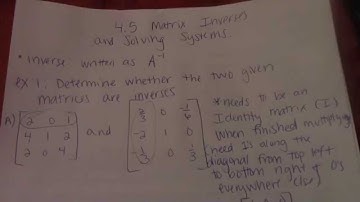 4.5 Matrix Inverses
and Solving Systems.
• Inverse written as A⁻¹
ex 1. Determine whether the two given
matrices are inverses
A) [2 0 1
4 1 2
2 0 4] and [2/3 0 -1/6
-2 1 0
-1/3 0 1/3]
*needs to be an
Identity matrix (I)
when finished multiplying
(need 1s along the
diagonal from top left
to bottom right & 0s
everywhere else)